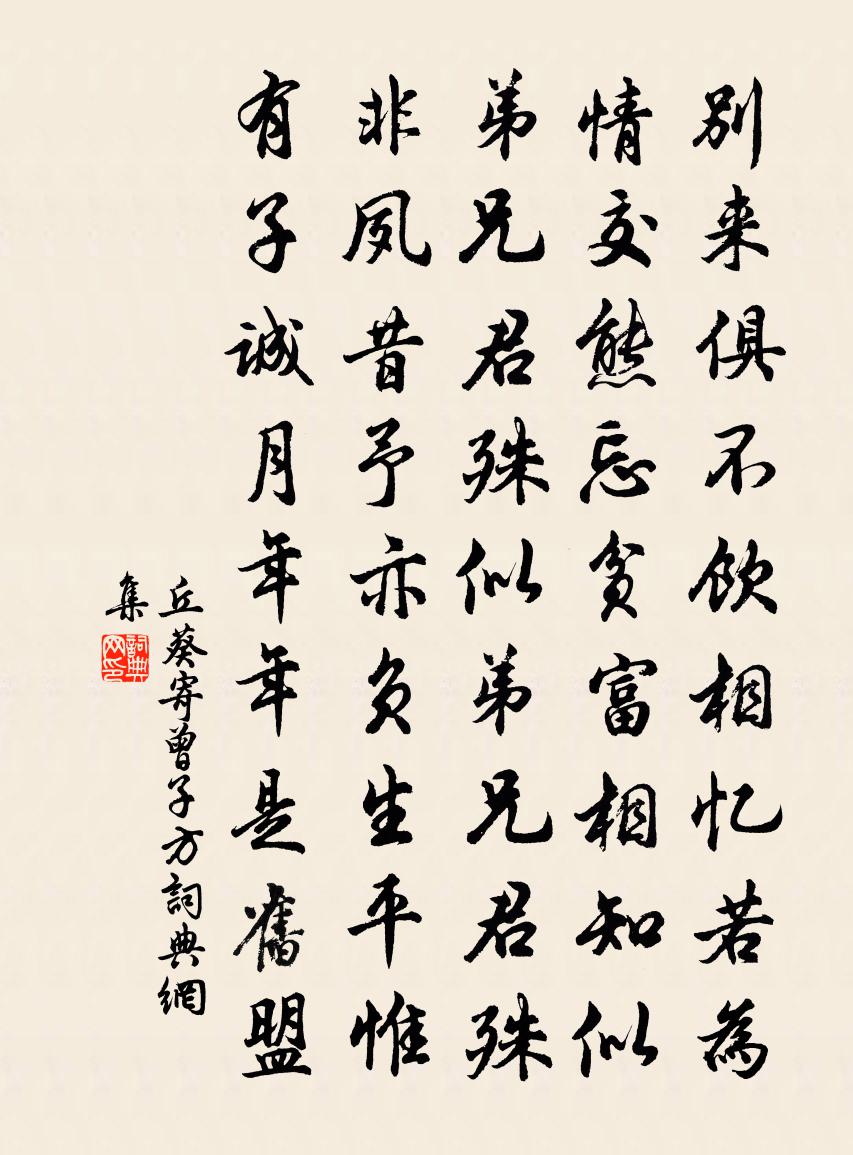 别来俱不飲相忆若為
情交態忘貧富相知似
弟兄君殊似弟兄君殊
非夙昔予亦負生平惟
有子誠月年年是舊盟
丘葵寄曾子方詞典網
集
詞典
网印